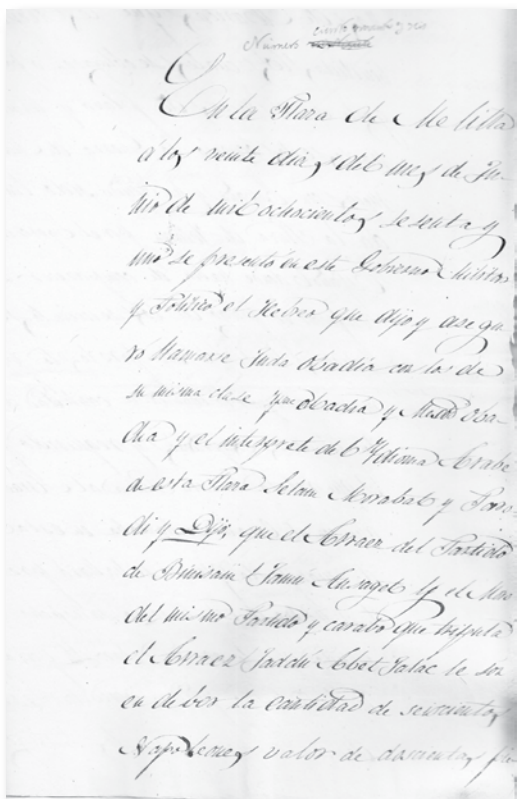 Número ciento
En la Plaza de Melilla
á los veinte dias del mes de Ju-
nio de mil ochocientos sesenta y
uno se presentó en este Gobierno Militar
y Politico el Hebreo que dijo y asegu-
ro llamarse Judá Obadia con los de
su misma clase Obadia y Oba-
dia y el interprete del Ydioma Arabe
de esta Plaza Selam Morabat y
y Dijo, que el Arraez del Partido
de y el
del mismo Partido y carabo que tripula
el Arraez le son
en deber la cantidad de seiscientos
Napoleones valor de doscientas